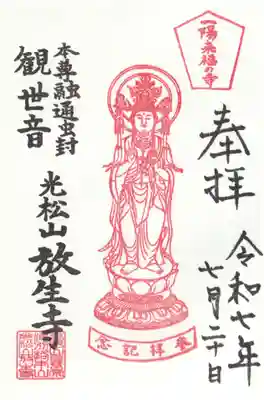 一陽来福の寺
奉拝
令和七年
七月二十日
本尊融通虫封
観世音
光松山
放生寺
奉拝記念